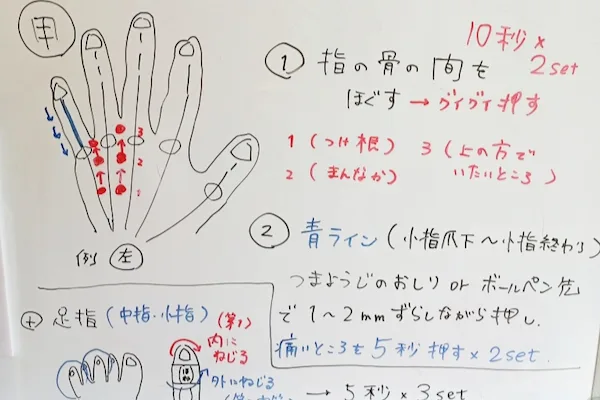 甲
10秒×
2set
① 指の骨の間を
ほぐす → グイグイ押す
1 (つけ根)
2 (まんなか)
3 (上の方で
いたいところ)
3
2
1
例 左
② 青ライン (小指爪下～小指終わり)
つまようじのおしり or ボールペン先
で 1～2mm ずらしながら押し.
痛いところを5秒押す×2set.
⊕ 足指 (中指・小指)
(第1)
内に
ねじる
外にねじる
→ 5秒×3set